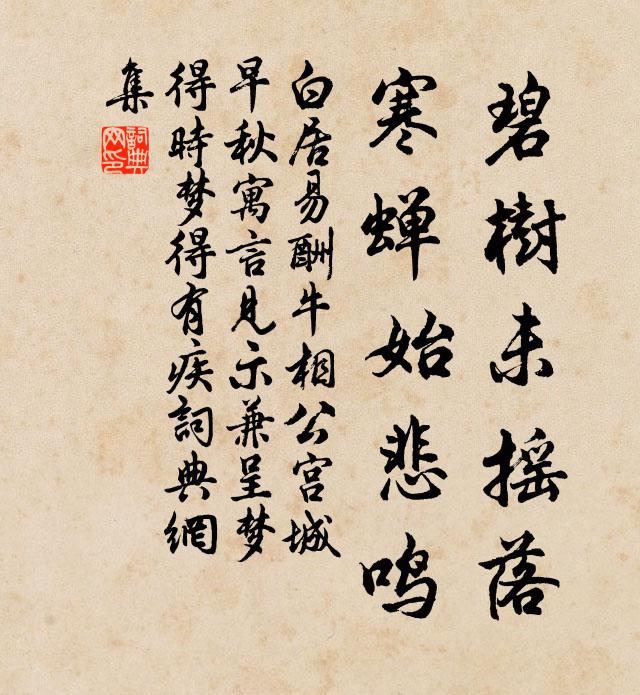 碧樹未摇落
寒蝉始悲鳴
白居易酬牛相公宫城
早秋寓言見示兼呈梦
得時梦得有疾詞典網
集
詞典
网印